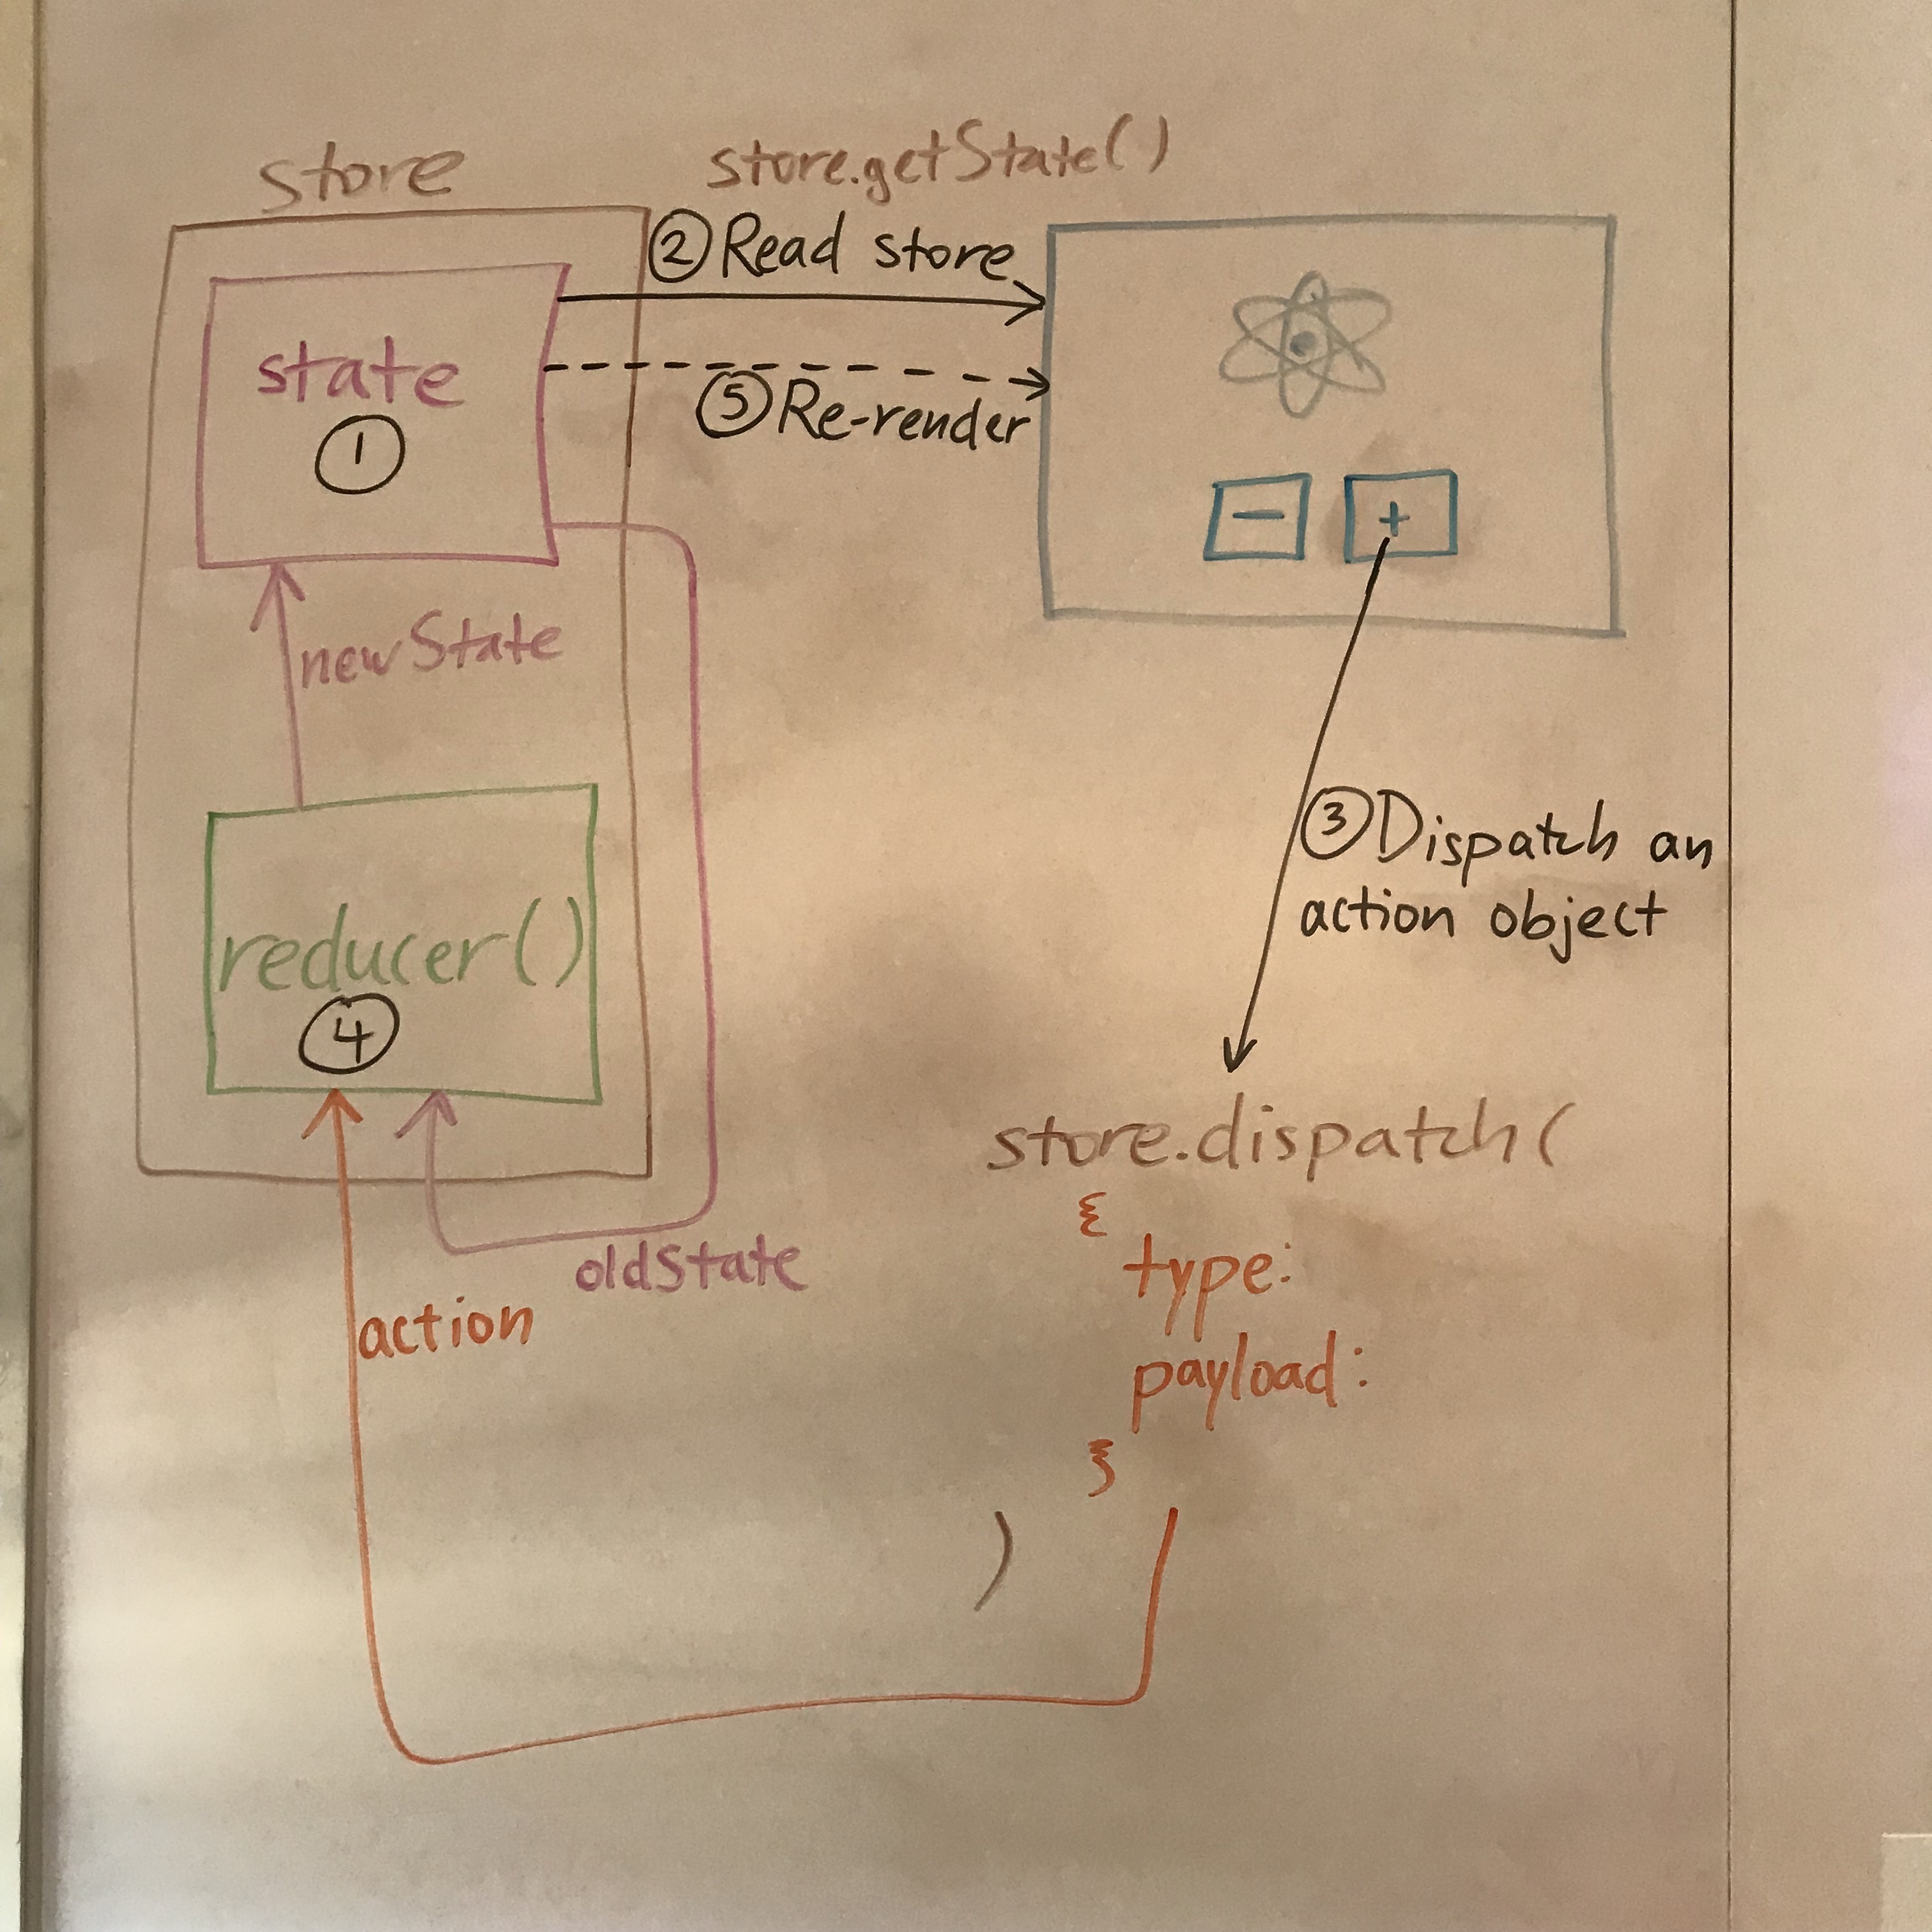 store
store.getState()
② Read store
state
①
⑤ Re-render
− +
newState
③ Dispatch an
action object
reducer()
④
store.dispatch(
{
type:
payload:
}
)
oldState
action